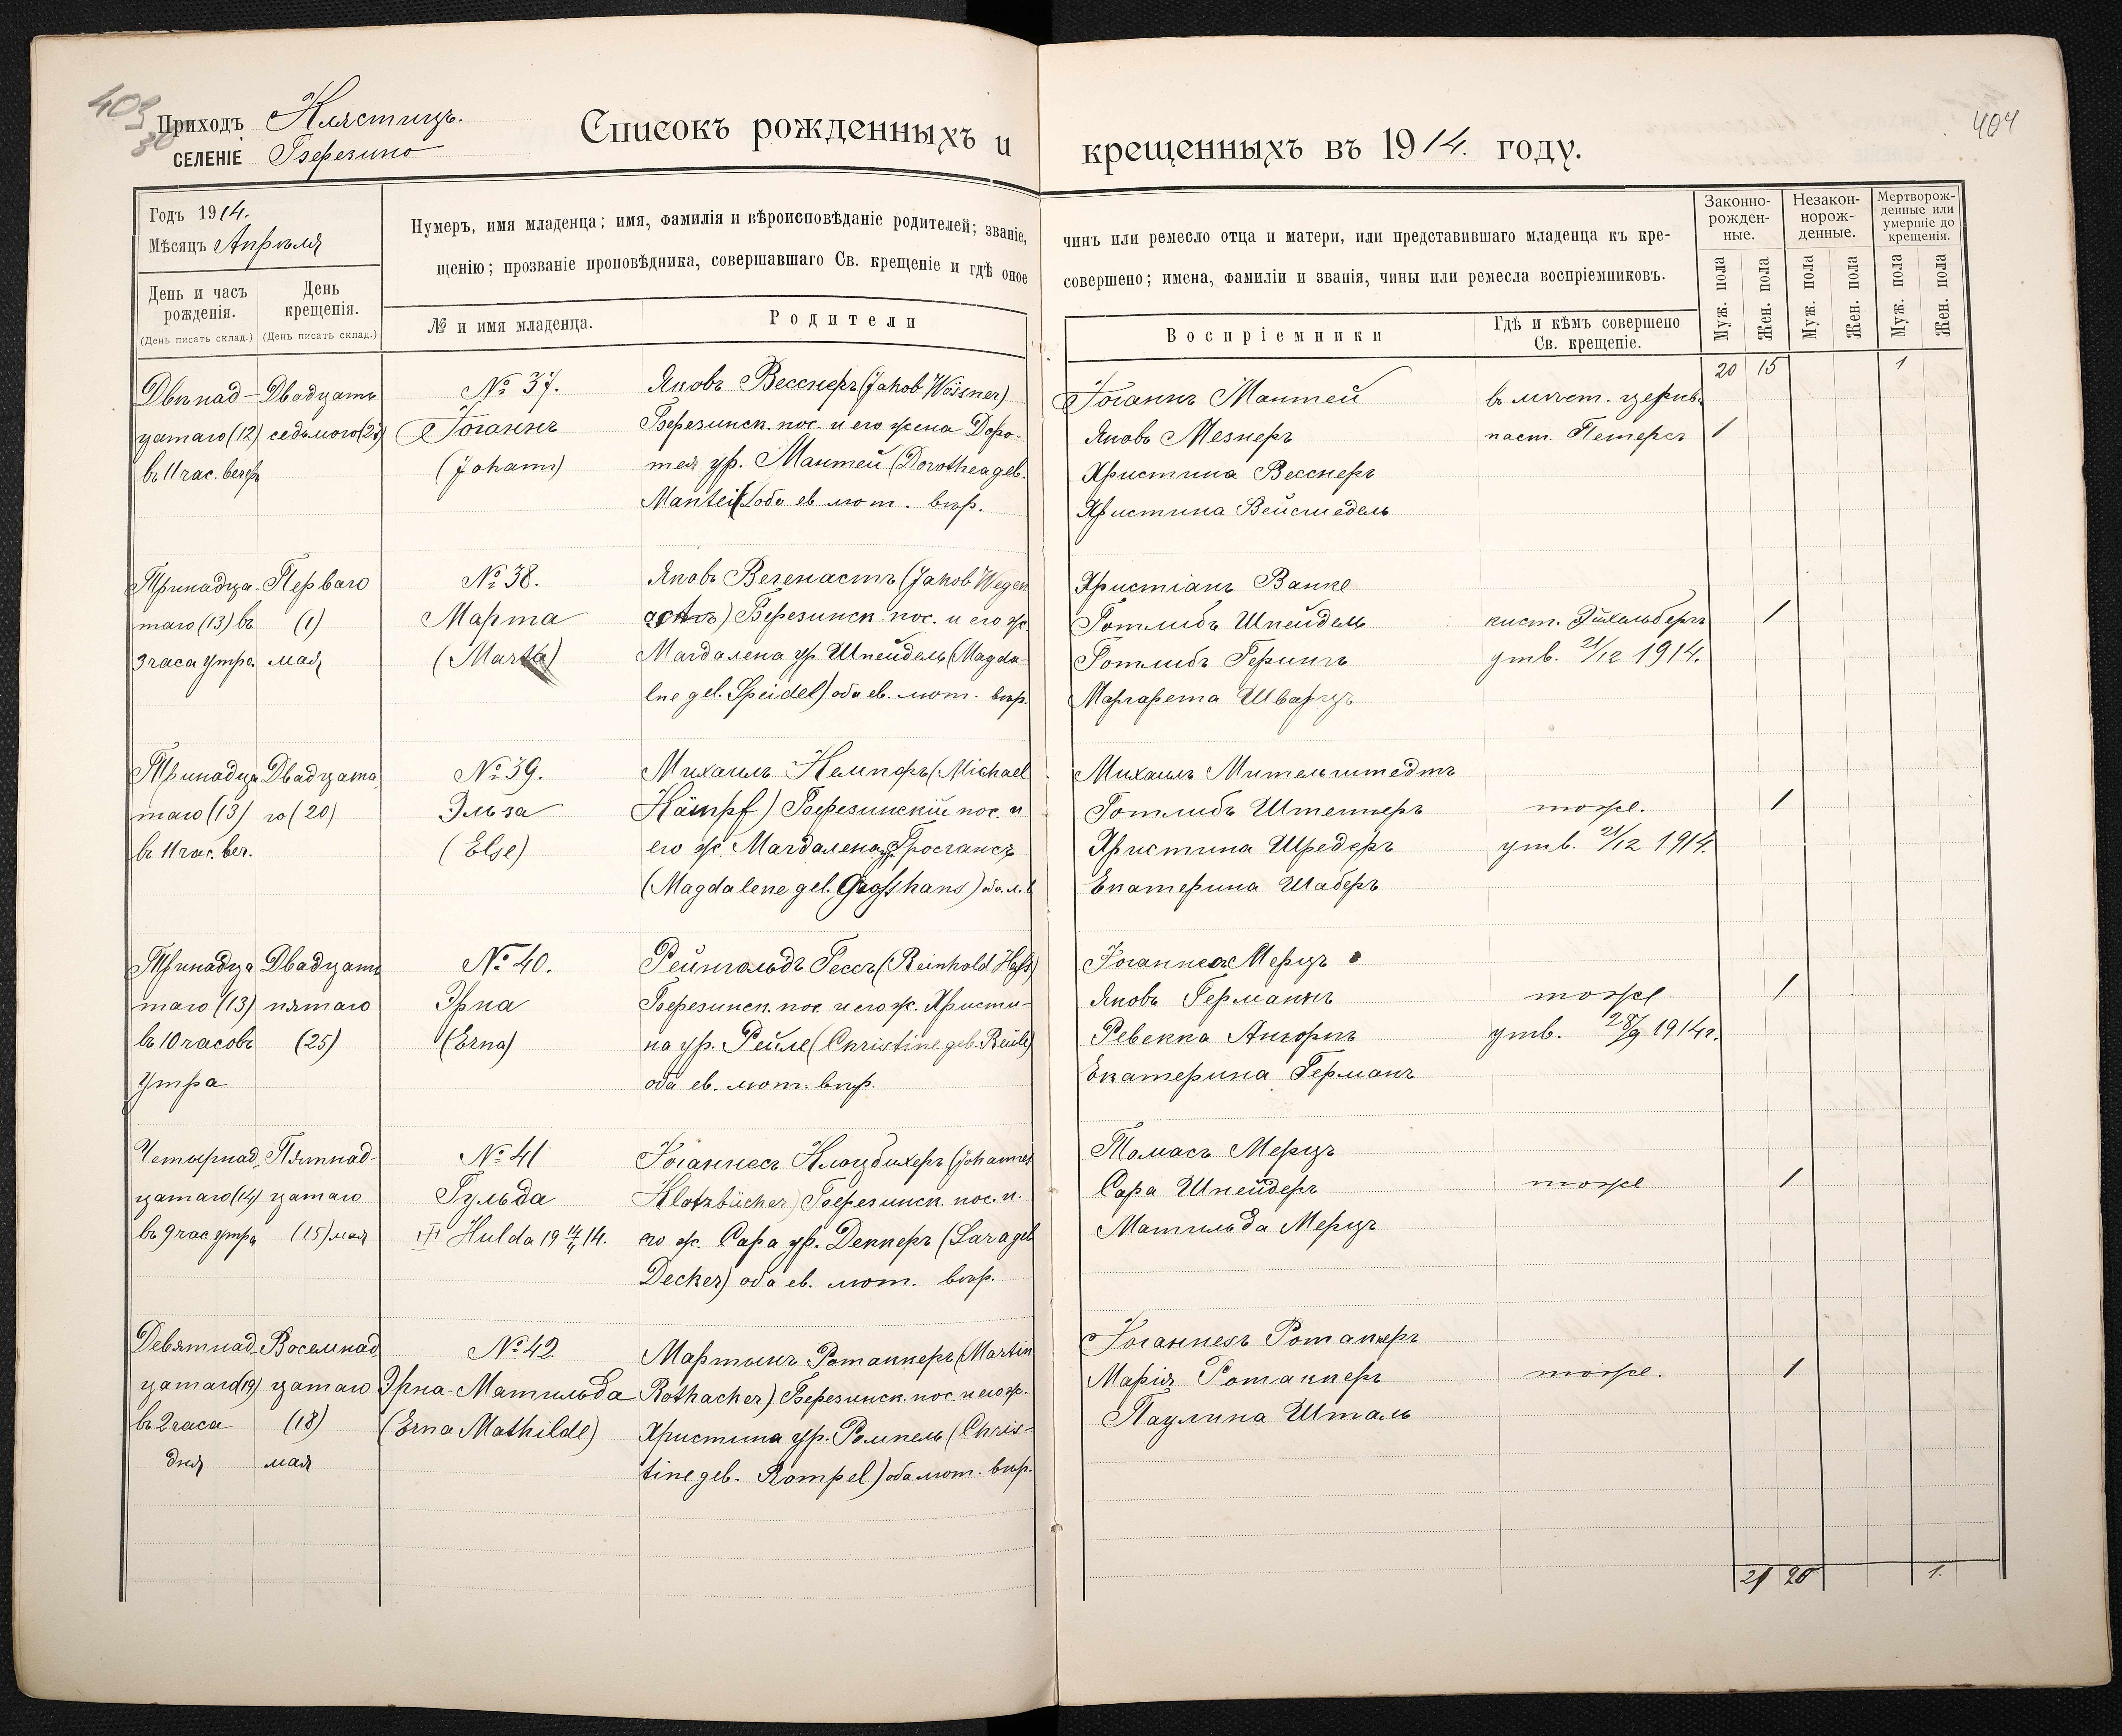 403
30
404
Приходъ Клястицъ.
СЕЛЕНІЕ Березино
Списокъ рожденныхъ и крещенныхъ въ 1914. году.
Годъ 1914.
Мѣсяцъ Апрѣля
Нумеръ, имя младенца; имя, фамилія и вѣроисповѣданіе родителей; званіе, чинъ или ремесло отца и матери, или представившаго младенца къ кре-
щенію; прозваніе проповѣдника, совершавшаго Св. крещеніе и гдѣ оное совершено; имена, фамиліи и званія, чины или ремесла воспріемниковъ.
Законно-
рожден-
ные.
Незакон-
норож-
денные.
Мертворож-
денные или
умершіе до
крещенія.
День и часъ
рожденія.
(День писать склад.)
День
крещенія.
(День писать склад.)
№ и имя младенца.
Родители
Воспріемники
Гдѣ и кѣмъ совершено
Св. крещеніе.
Муж. пола
Жен. пола
Муж. пола
Жен. пола
Муж. пола
Жен. пола
20 15 1
Двѣнад-
цатаго (12)
въ 11 час. вечер.
Двадцать
седьмого (27)
№ 37.
Іоганнъ
(Johann)
Яковъ Весснеръ (Jakob Wössner)
Березинск. пос. и его жена Доро-
тея ур. Мантей (Dorothea geb.
Mantei) оба ев. лют. вѣр.
Іоганнъ Мантей
Яковъ Мезнеръ
Христина Весснеръ
Христина Вейспедель
въ мѣст. церкв.
паст. Петерсъ
1
Тринадца-
таго (13) въ
3 часа утра
Перваго
(1)
мая
№ 38.
Марта
(Martha)
Яковъ Вегенастъ (Jakob Wegen
ast) Березинск. пос. и его ж.
Магдалена ур. Шпейдель (Magda-
lne geb. Speidel) оба ев. лют. вѣр.
Христіанъ Ванке
Готлибъ Шпейдель
Готлибъ Герингъ
Маргарета Шварцъ
кист. Эйхельбергъ
утв. 21/12 1914.
1
Тринадца
таго (13)
въ 11 час. веч.
Двадцата
го (20)
№ 39.
Эльза
(Else)
Михаилъ Кемпфъ (Michael
Kämpf) Березинскій пос. и
его ж. Магдалена ур. Гросгансъ
(Magdalene geb. Grosshans) об. л. в
Михаилъ Мительштедтъ
Готлибъ Штеннеръ
Христина Шредеръ
Екатерина Шаберъ
тоже.
утв. 21/12 1914.
1
Тринадца
таго (13)
въ 10 часовъ
утра
Двадцать
пятаго
(25)
№ 40.
Эрна
(Erna)
Рейнгольдъ Гессъ (Reinhold Hess)
Березинск. пос. и его ж. Христи-
на ур. Рейле (Christine geb. Reule)
оба ев. лют. вѣр.
Іоганнесъ Мерцъ
Яковъ Германнъ
Ревекка Ангорнъ
Екатерина Германъ
тоже
утв. 28/9 1914 г.
1
Четырнад-
цатаго (14)
въ 9 час. утра
Пятнад-
цатаго
(15) мая
№ 41
Гульда
Hulda 19 14.
Іоганнесъ Клоцбихеръ (Johannes
Klotzbücher) Березинск. пос. и.
его ж. Сара ур. Деккеръ (Sara geb
Decker) оба ев. лют. вѣр.
Томасъ Мерцъ
Сара Шнейдеръ
Матильда Мерцъ
тоже
1
Девятнад-
цатаго (19)
въ 2 часа
дня
Восемнад
цатаго
(18)
мая
№ 42.
Эрна-Матильда
(Erna Mathilde)
Мартынъ Ротаккеръ (Martin
Rothacker) Березинск. пос. и его ж.
Христина ур. Ромпель (Chris-
tine geb. Rompel) оба лют. вѣр.
Іоганнесъ Ротаккеръ
Марія Ротаккеръ
Паулина Шталь
тоже.
1
21 20 1.